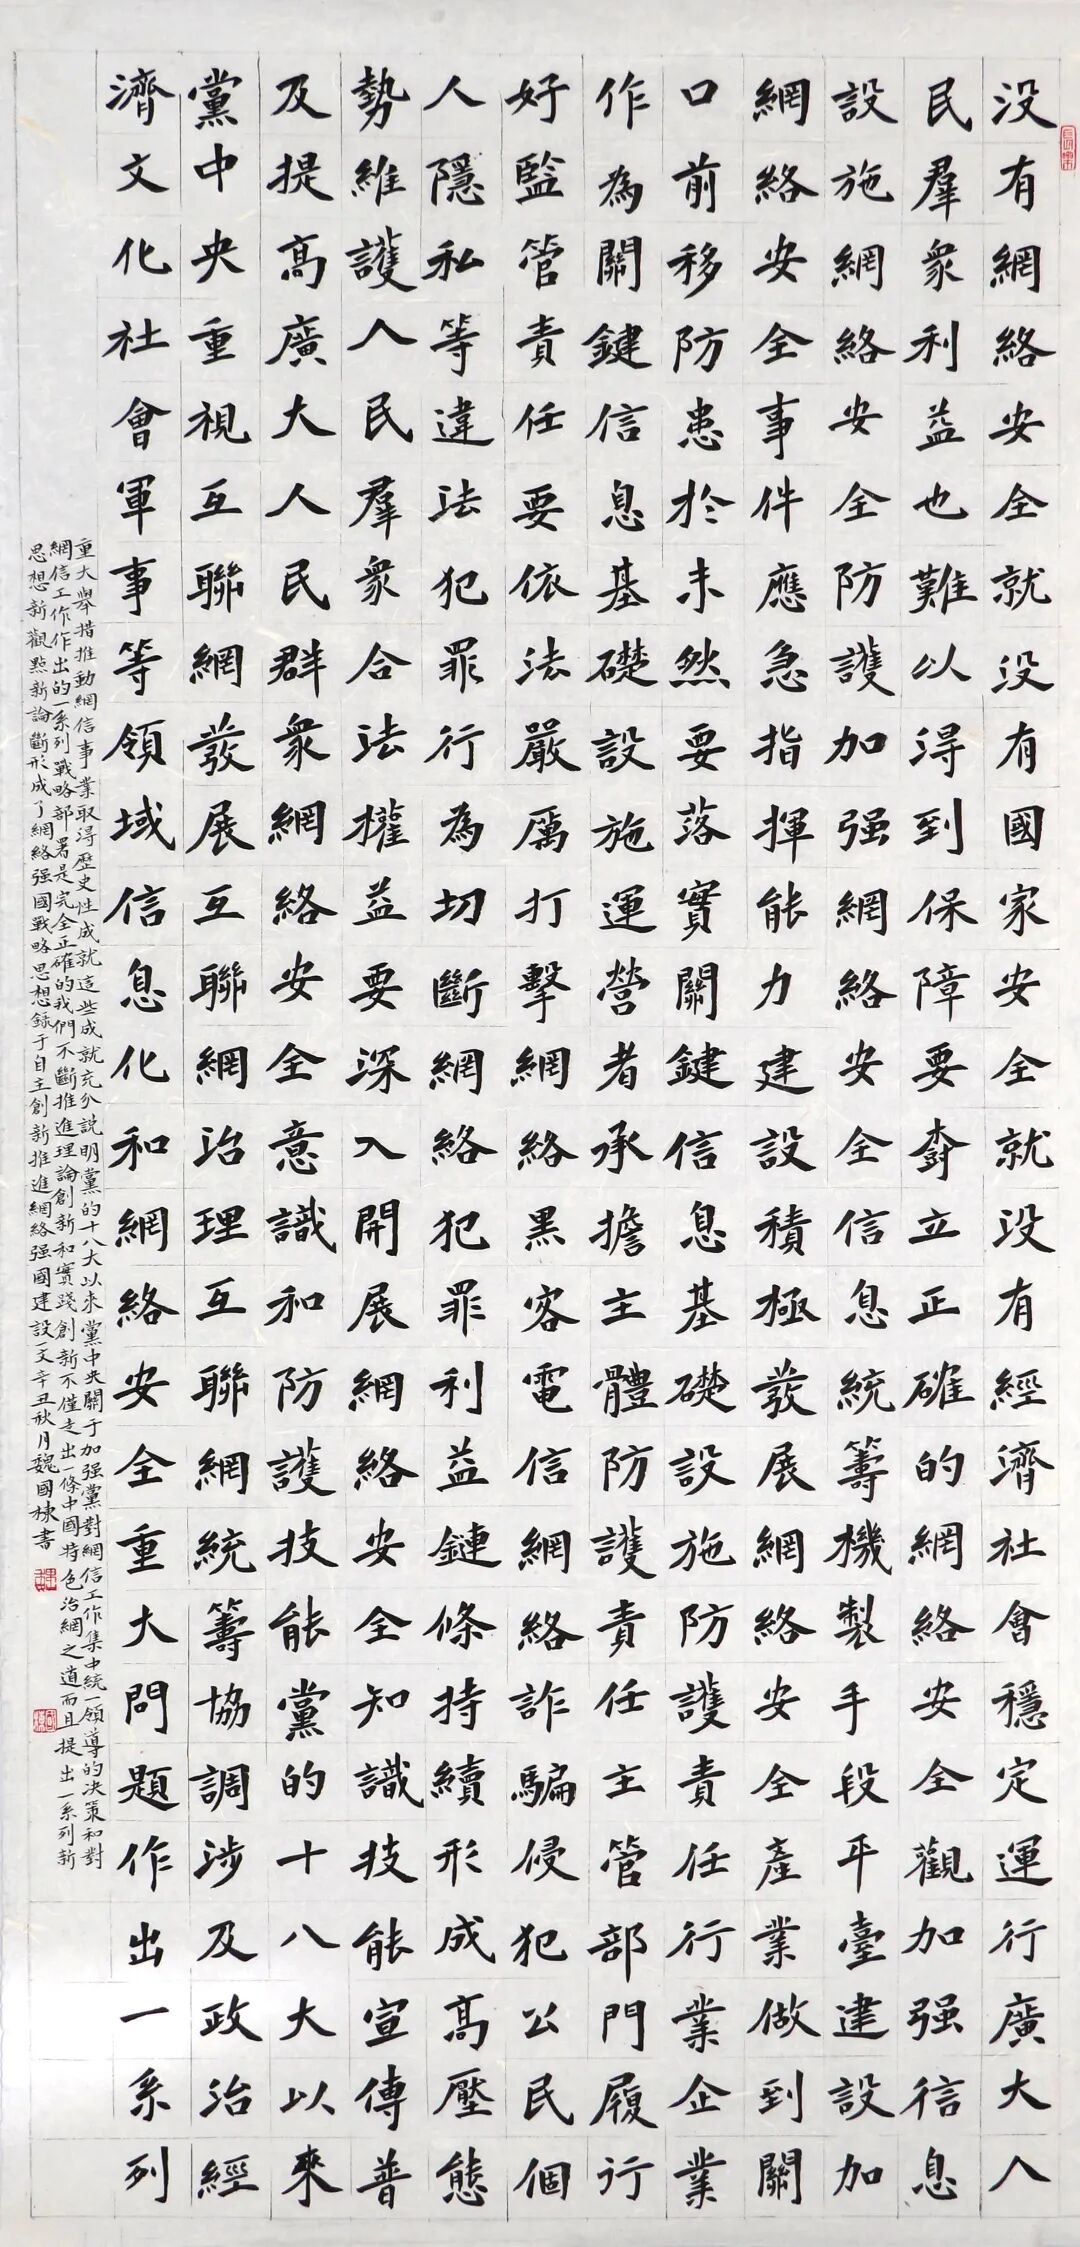 没有網絡安全就没有國家安全就没有經濟社會穩定運行廣大人
民羣衆利益也難以得到保障要樹立正確的網絡安全觀加强信息
設施網絡安全防護加强網絡安全信息統籌機製手段平臺建設加
網絡安全事件應急指揮能力建設積極發展網絡安全產業做到關
口前移防患於未然要落實關鍵信息基礎設施防護責任行業企業
作為關鍵信息基礎設施運營者承擔主體防護責任主管部門履行
好監管責任要依法嚴厲打擊網絡黑客電信網絡詐騙侵犯公民個
人隱私等違法犯罪行為切斷網絡犯罪利益鏈條持續形成高壓態
勢維護人民羣衆合法權益要深入開展網絡安全知識技能宣傳普
及提高廣大人民群衆網絡安全意識和防護技能黨的十八大以來
黨中央重視互聯網發展互聯網治理互聯網統籌協調涉及政治經
濟文化社會軍事等領域信息化和網絡安全重大問題作出一系列
重大舉措推動網信事業取得歷史性成就這些成就充分説明黨的十八大以來黨中央關于加强黨對網信工作集中統一領導的决策和對
網信工作作出的一系列戰略部署是完全正確的我們不斷推進理論創新和實踐創新不僅走出一條中國特色治網之道而且提出一系列新
思想新觀點新論斷形成了網絡强國戰略思想録于自主創新推進網絡强國建設一文辛丑秋月魏國棟書